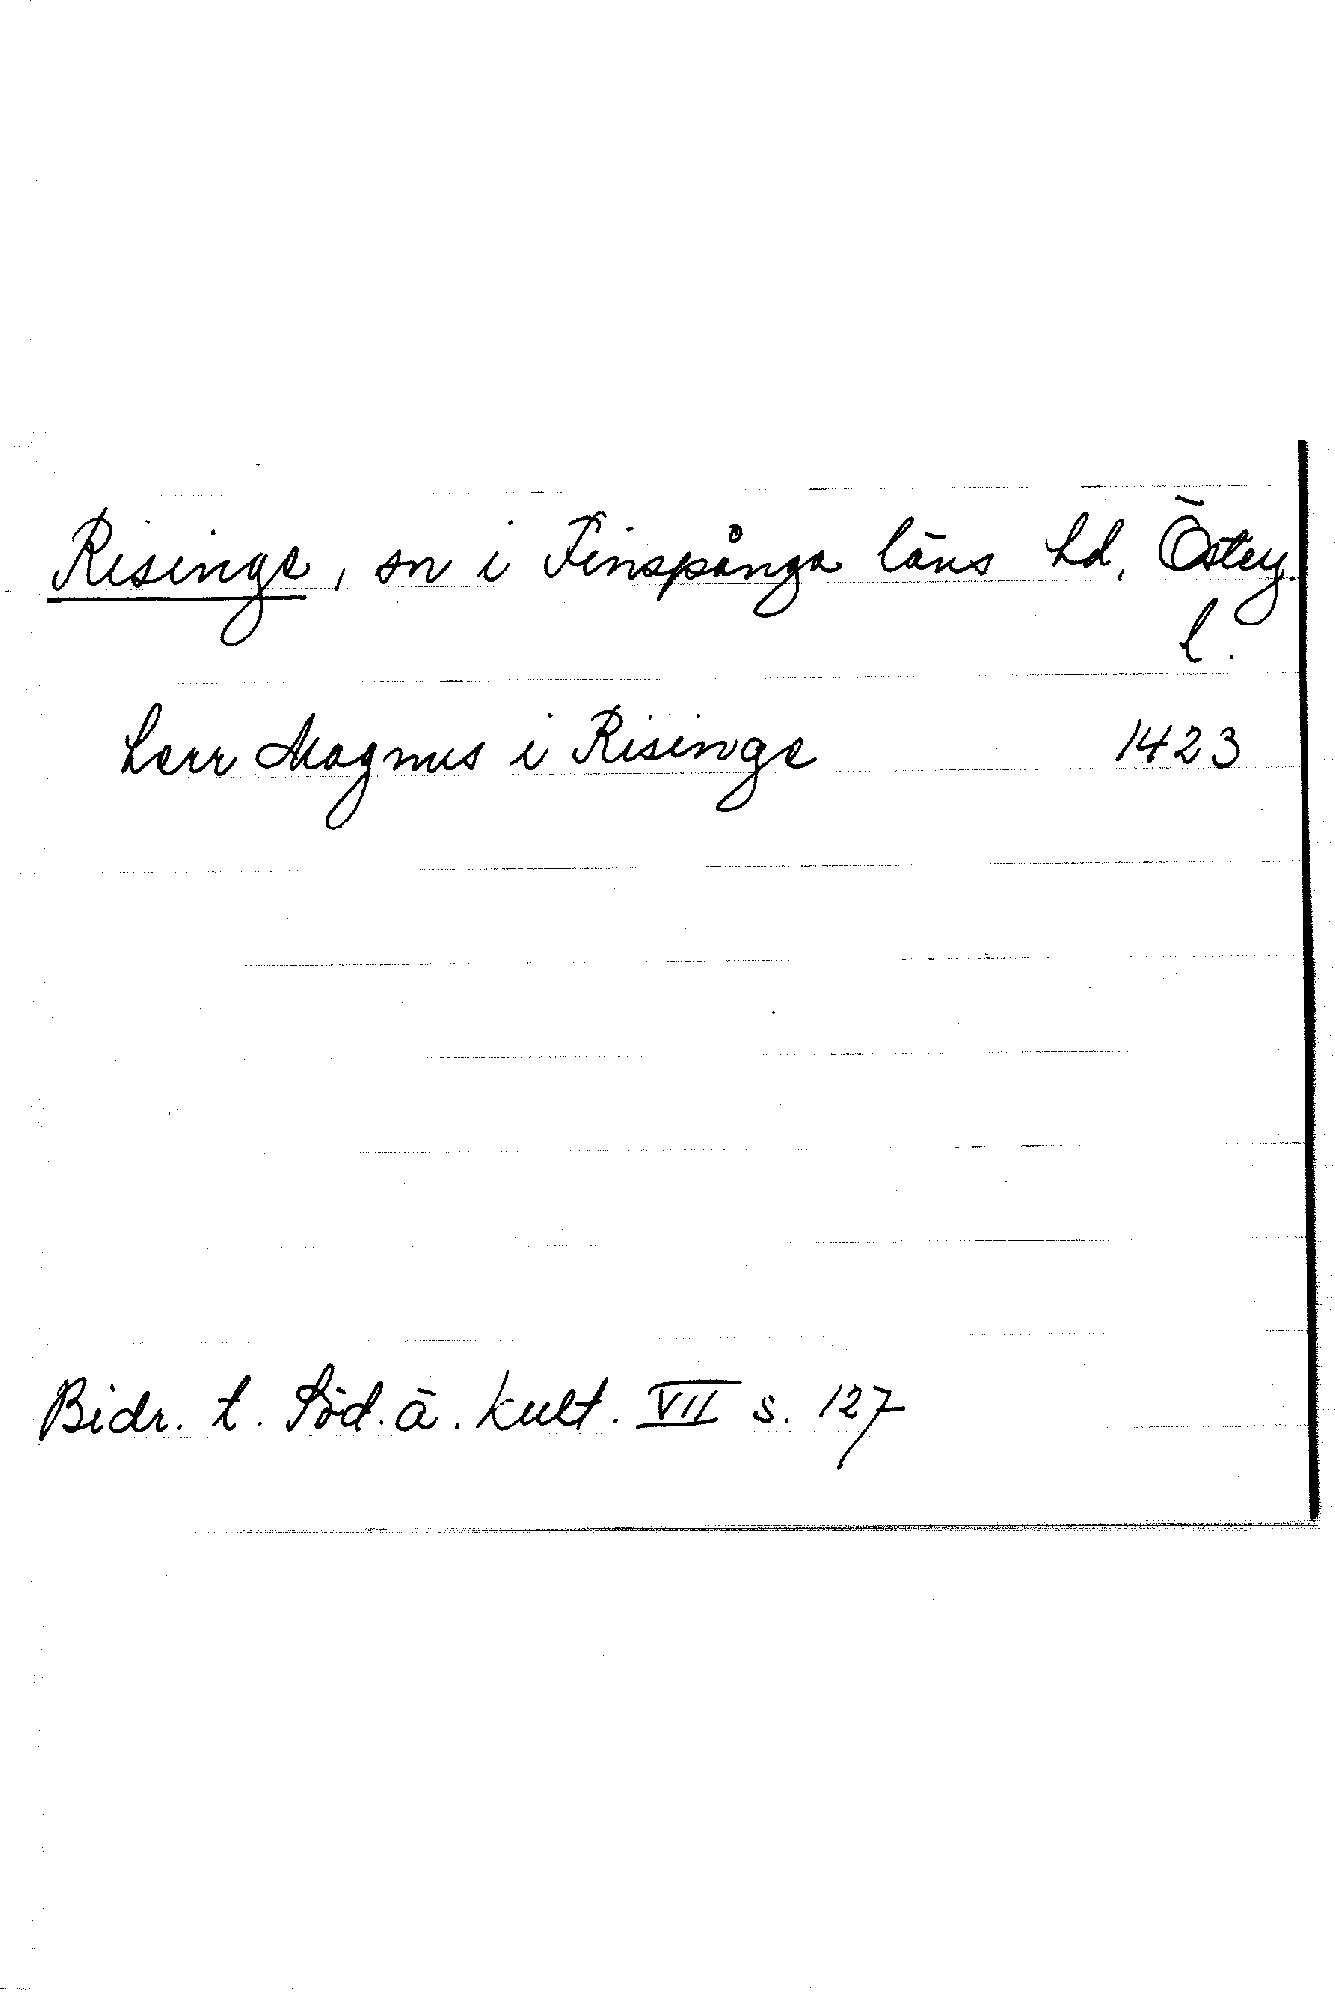 Risinge, sn i Finspånga läns hd, Österg.
l.
herr Magnus i Risinge 1423
Bidr. t. Söd. ä. kult. VII s. 127